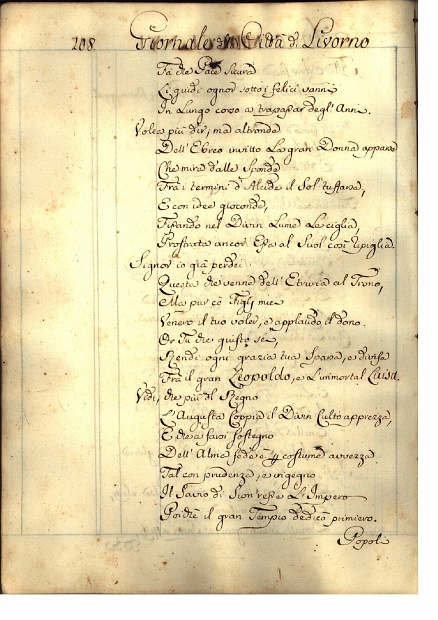 208 Giornale Città di Livorno
Fa che Pace sicura
Li guidi ognor sotto i felici vanni
In Lungo corso a trapassar degl'Anni.
Volea più dir, ma altronde
Dell'Ebreo invitto La gran Donna apparse
Che mira dalle Sponde
Tra i termini d'Alcide il Sol tuffarsi,
E con idee gioconde,
Fissando nel Divin Lume La ciglia,
Prostrata ancor Essa al Suol così ripiglia.
Signor io già perdei
Questa che venne dell'Etruria al Trono,
Ma pur co Figli miei
Venero il tuo voler, e applaudo il dono.
Or Tu che giusto sei,
Spendi ogni grazia tua
Tra il gran Leopoldo, e L'immortal Luisa.
Vedi, che più Segno
L'Augusta Coppia il Divin Culto apprezza,
E che a farsi sostegno
Dell'Alma fede e costume avvezza
Tal con prudenza, e ingegno
Il Savio di Sion resse L'Impero
Poichè il gran Tempio dedicò primiero.
Popoli